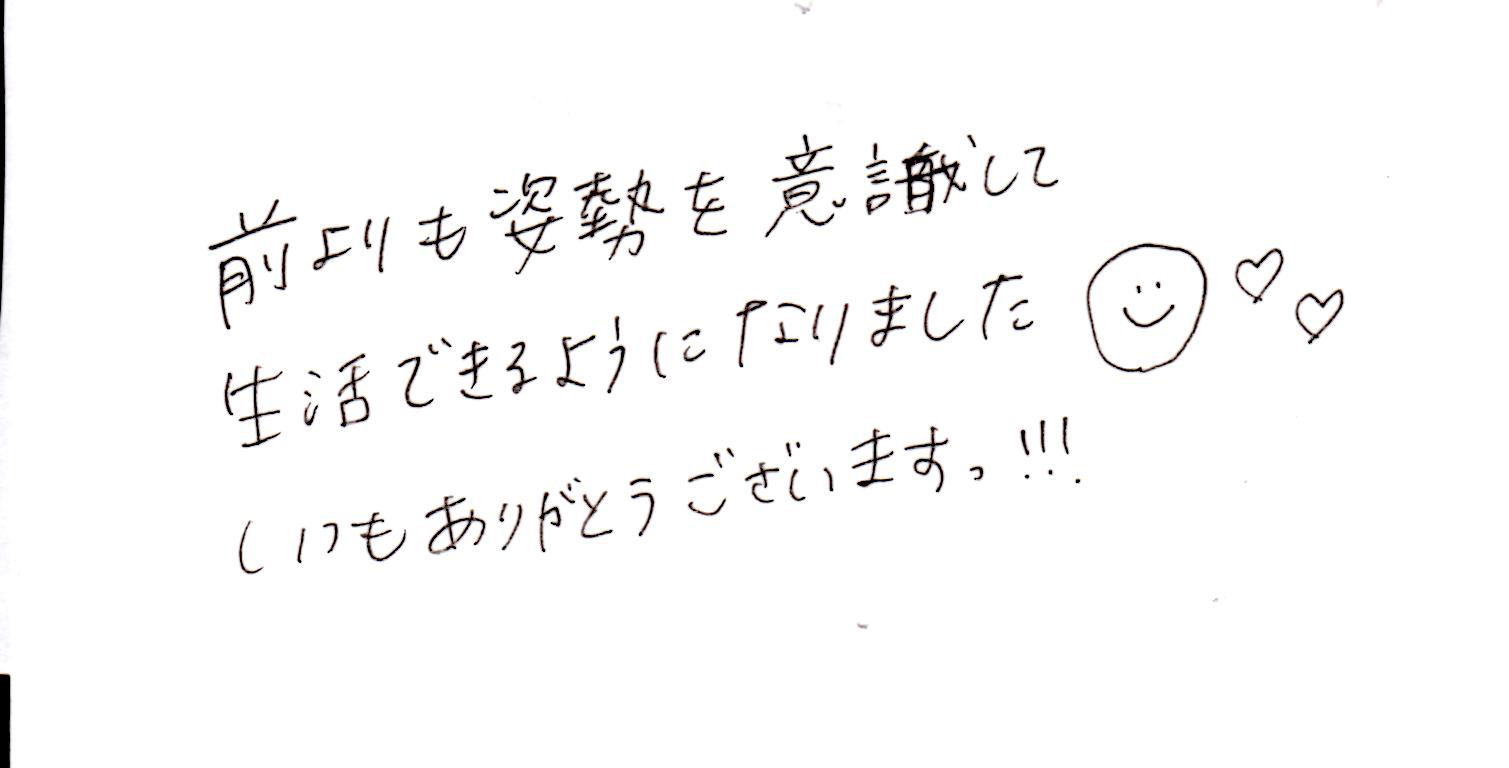 前よりも姿勢を意識して
生活できるようになりました
いつもありがとうございますっ!!!